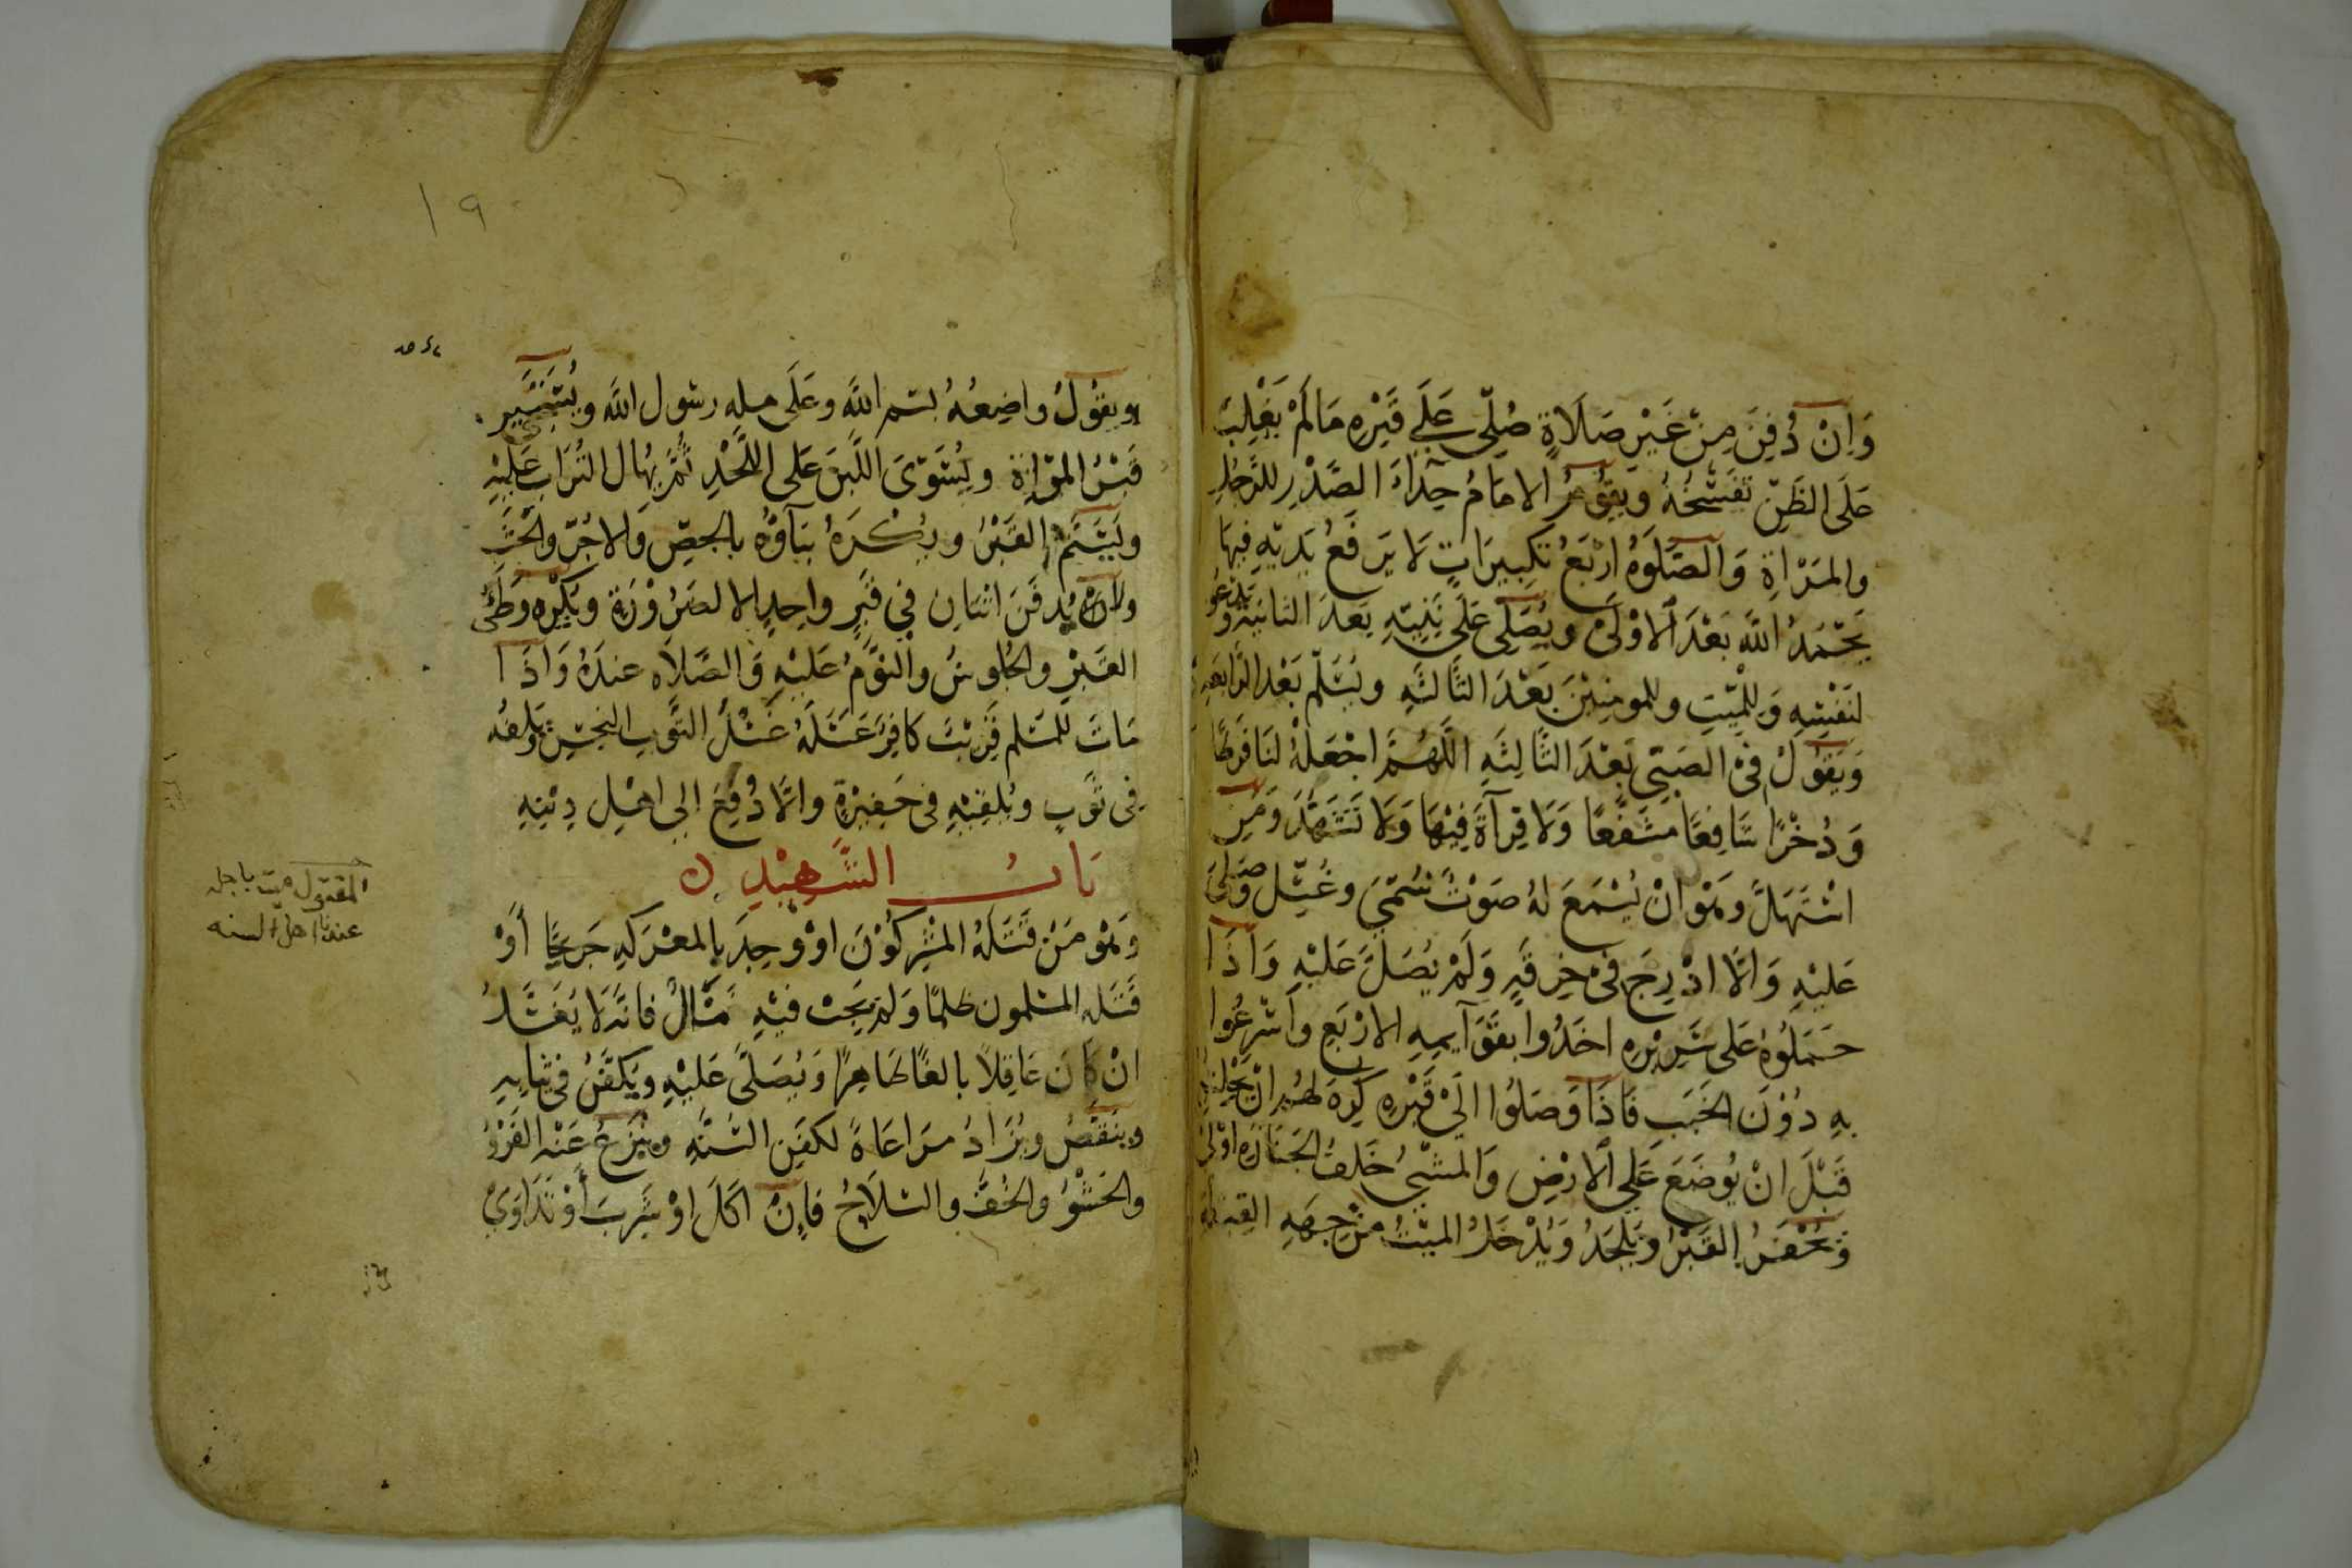 وَاِنْ دُفِنَ مِنْ غَيْرِ صَلَاةٍ صُلِّى عَلَى قَبْرِهِ مَا لَمْ يَغْلِبْ
عَلَى الظَنِّ تَفَسُّخُهُ وَيَقُومُ الامَامُ حِذَاءَ الصَّدْرِ للرَّجُلِ
والمَرْاةِ وَالصَّلَوةُ ارْبَعُ تَكبِيرَاتٍ لَا يَرفَعُ يَدَيْهِ فِيهَا
يَحْمَدُ اللَّهَ بَعْدَ الاوْلَى ويُصَلِّى عَلَى نَبِيِّهِ بَعدَ الثانيَةِ ويَدْعُو
لنَفْسِهِ وَلِلْمَيِّتِ وللمومِنِيْنَ بَعْدَ الثَّالثَهِ ويُسَلِّم بَعْدَ الرَّابعَهِ
وَيَقولُ فى الصَبِىِّ بَعْدَ الثَّالِثَهِ اللَّهُمَّ اجْعَلْهُ لنَا فَرَطًا
وَذُخْرًا شَافِعًا مُشَفَّعًا وَلَا قِرآةَ فِيْهَا وَلَا تَشَهُّدَ وَمَنِ
اسْتَهَلَّ وَهْوَ انْ يُسْمَعَ لهُ صَوْتٌ سُمِّىَ وغُسِّلَ وصُلِّىَ
عَليْهِ وَالَّا ادْرِجَ فى خِرقَهٍ وَلَمْ يُصَلَّ عَلَيْهِ وَاذَا
حَمَلُوهُ عَلى سَرِيْرِهِ اخَذُوا بقَوَآيمِهِ الارْبَعِ وَاَسْرَعُوا
بِهِ دُوْنَ الخَبَبِ فَاذَا وَصَلُوا الَى قَبْرِهِ كُرِهَ لهُم انْ يَجْلِسُوا
قَبْلَ انْ يُوضَعَ عَلى الارْضِ وَالمشْىُ خَلفَ الجَنَازَهِ اوْلَى
وَيُحْفَرُ القَبْرُ وَيُلحَدُ وَيُدْخَلُ الميّتُ مِنْ جِهَهِ القِبْلَة
١٩
ويقُوْلُ واضِعُهُ بسم اللَّه وعَلَى مله رسُول اللَّه و
قَبْرُ المرْاةِ ويُسَوّىَ اللَّبِنَ عَلى اللَّحْدِ ثُمَّ يُهَال التُرَابُ عَلَيْهِ
ويُسَنَّمُ القَبْرُ ويُكْرَهُ بنَآوُهُ بالجصّ وَالاجُرّ والخَشَب
ولا يُدفَنَ اثنَانِ فى قَبْرٍ واحِدٍ الا لضَرُوْرَةٍ ويُكْرَه وَطْئُ
القَبْرِ والجُلوسُ والنَوْمُ عَلَيْهِ وَالصَّلَاه عندَهُ وَاذَا
مَاتَ للمسْلم قَرِيْبٌ كافِرٌ غَسَّلَهُ غَسْلَ الثَّوبِ النجس ويَلفُه
فى ثَوْبٍ ويُلقِيْهِ فى حَفِيْرَةٍ والَّا دُفِعَ الى اهْلِ دِيْنِهِ
بَابُ الشَّهِيْدِ
وَهْوَ مَنْ قَتَلَهُ المشْرِكُوْنَ اوْ وُجِدَ بالمعْرَكهِ جَرِيحًا أَوْ
قَتَلهُ المسْلمون ظلمًا وَلمْ يَجِبْ فيْهِ مَالٌ فانَّه لَا يُغَسَّلُ
انْ كانَ عَاقِلًا بالغًا طَاهِرًا وَيُصَلَّى عَلَيْهِ ويُكَفَّنُ فى ثيَابِهِ
ويُنقَصُ ويُزَادُ مرَاعَاةً لكفَنِ السُنَّهِ ويُنْزَعُ عَنْهُ الفَرْوُ
والحَشْوُ والخُفّ والسّلَاحُ فانْ اكَلَ اوْ شَرِبَ أَوْ تَدَاوَى
المقتول ميت باجله
عندنا اهل السنه